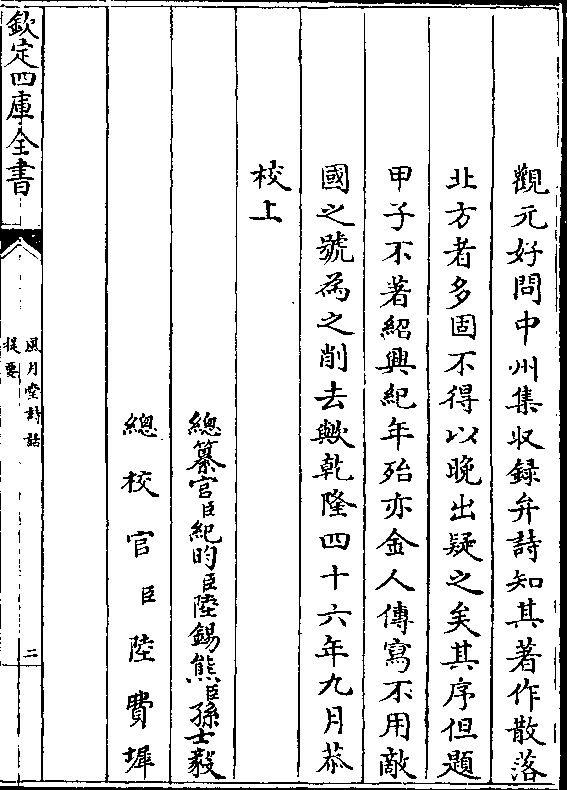 觀元好問中州集收録弁詩知其著作散落
北方者多固不得以晚出疑之矣其序但題
甲子不著紹興紀年殆亦金人傳寫不用敵
國之號為之削去歟乾隆四十六年九月恭
校上
總纂官臣紀昀臣陸錫熊臣孫士毅
總校官臣陸費墀
欽定四庫全書
風月堂詩話
提要
二